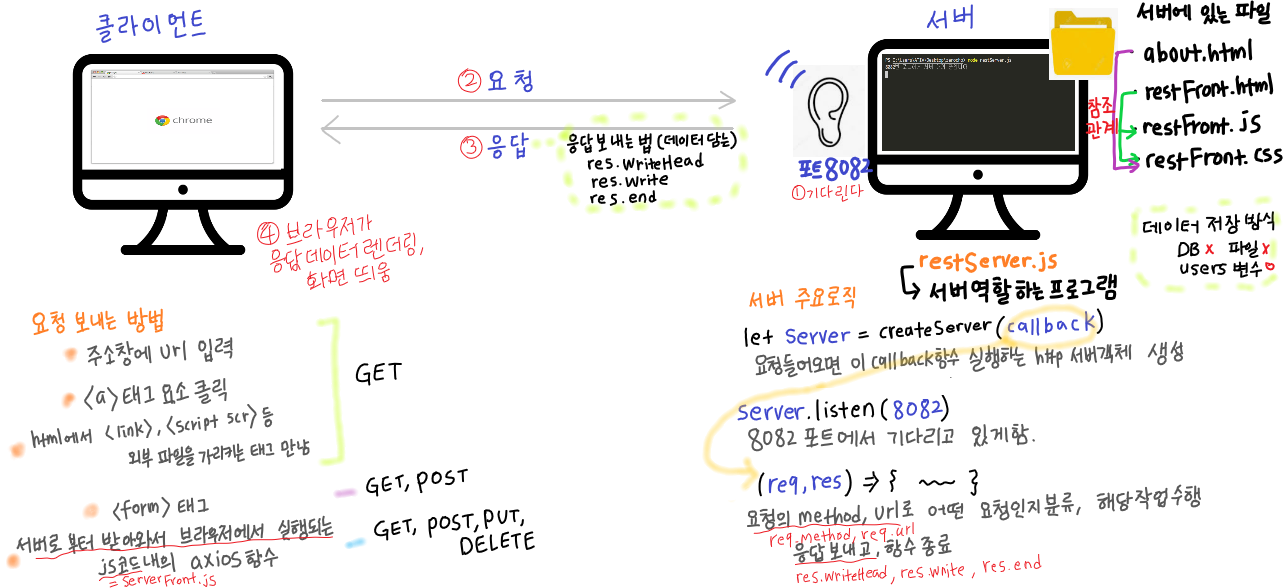 클라이언트
chrome
② 요청
③ 응답
응답 보내는 법 (데이터 담는)
res.writeHead
res.write
res.end
④ 브라우저가
응답데이터 렌더링,
화면 띄움
서버
node restServer.js
포트8082
①기다린다
서버에 있는 파일
about.html
restFront.html
restFront.js
restFront.css
참조
관계
데이터 저장 방식
DB x 파일 x
users 변수 o
restServer.js
서버역할하는프로그램
요청 보내는 방법
주소창에 url 입력
<a> 태그 요소 클릭
html에서 <link>, <script scr> 등
외부 파일을 가리키는 태그 만남
GET
<form> 태그
GET, POST
서버로부터 받아와서 브라우저에서 실행되는
js코드내의 axios 함수
= serverFront.js
GET, POST, PUT,
DELETE
서버 주요로직
let Server = createServer(callback)
요청들어오면 이 callback함수 실행하는 http 서버객체 생성
Server.listen(8082)
8082 포트에서 기다리고 있게함.
(req,res) => { ~~ }
요청의 method, url로 어떤 요청인지분류, 해당작업수행
req.method, req.url
응답보내고, 함수 종료
res.writeHead, res.write, res.end